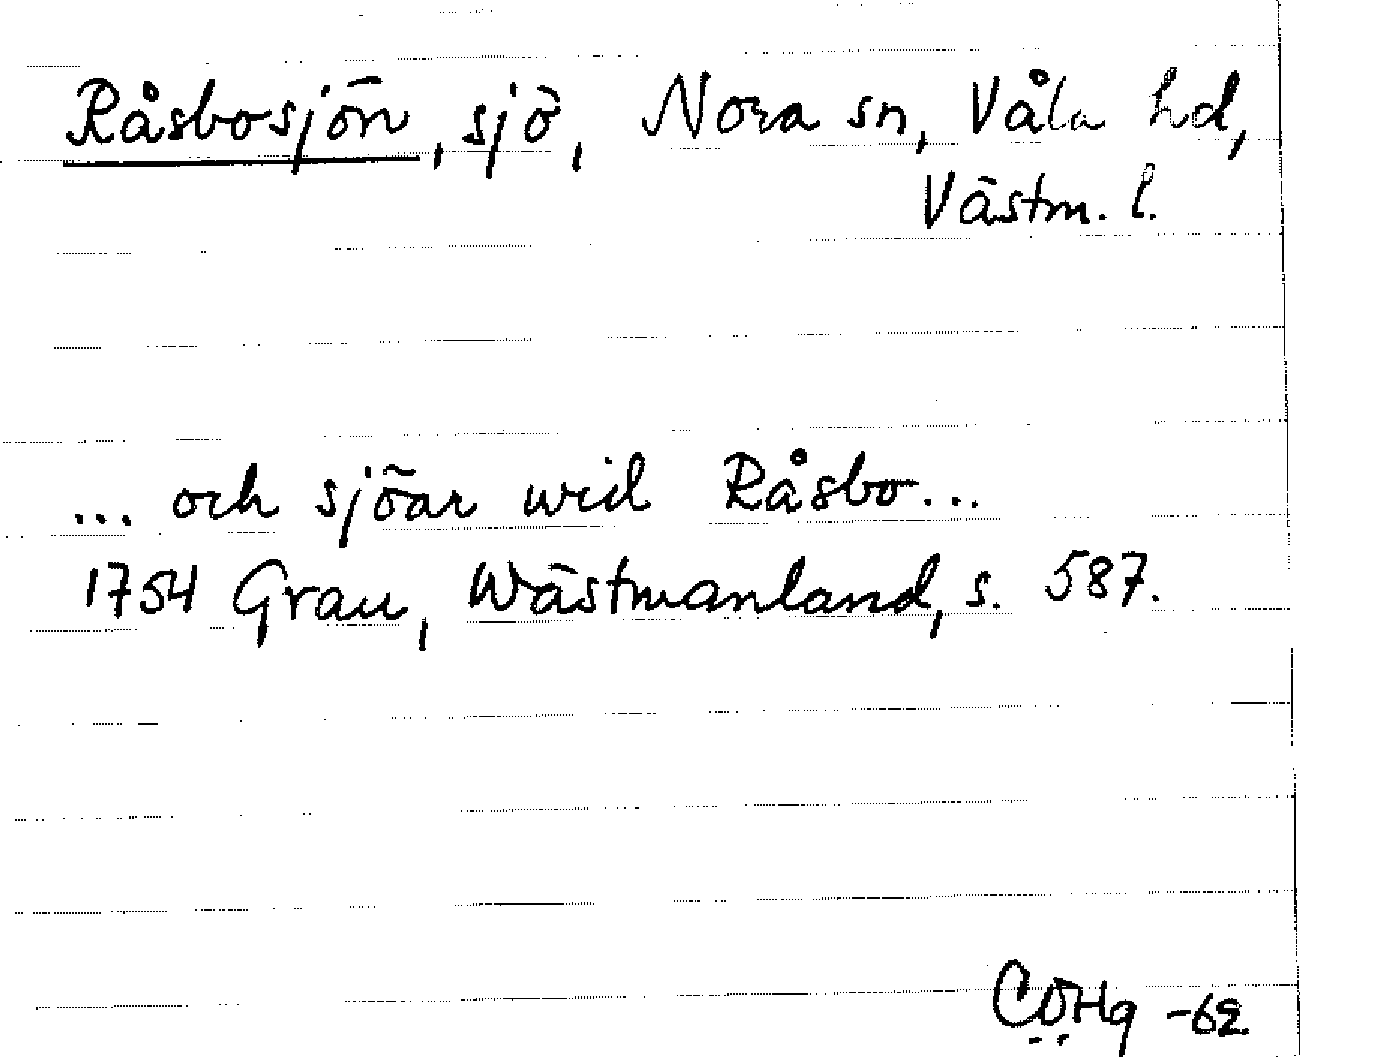 Råsbosjön, sjö, Nora sn, Våla hd,
Västm. l.
... och sjöar wid Råsbo...
1754 Grau, Wästmanland, s. 587.
CÖHg -62